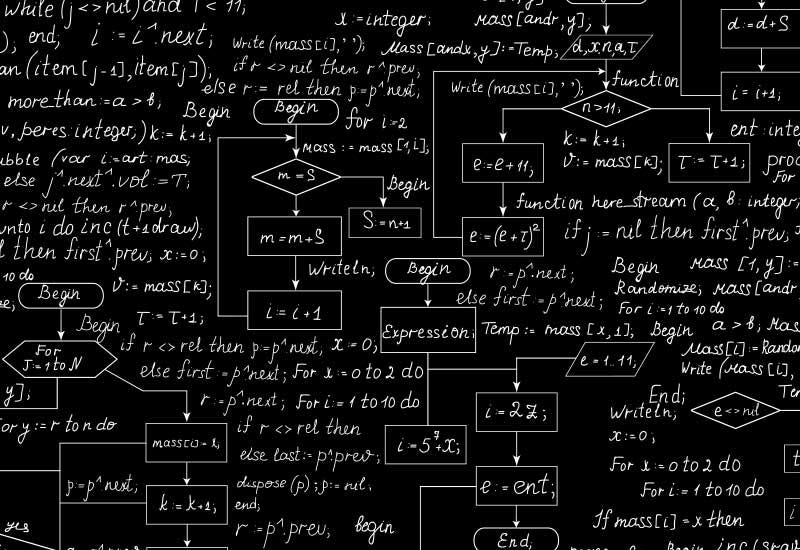 while (j <> nil) and i < 11;
x := integer;
mass [andr, y];
d := d + S
); end;
i := i^.next;
write (mass[i], ' ');
Mass [andx, y] := Temp;
d, x, n, a, τ
(item[j-1], item[j]);
if r <> nil then r^.prev,
function
else r := rel then p := p^.next;
Write (mass[i], ' ');
i = i+1,
more_than := a > b,
Begin
Begin
for i := 2
n > 11;
v, peres: integer,) k := k+1;
mass := mass [1, i];
k := k+1;
(var i := art: mas;
m = S
e := e + 11,
v := mass [k];
τ := τ+1;
else j^.next^.vol := T;
Begin
r <> nil then r^.prev,
S := n+1
function here_stream (a, b: integer,
i do inc (t + 1 draw);
m = m + S
e := (e + τ)²
if j := nil then first^.prev,
then first^.prev, x := 0,
Writeln,
Begin
r := p^.next;
Begin
Mass [1, y] :=
10 do
Begin
v := mass [k];
else first := p^.next;
Randomize, Mass [andr
τ := τ+1;
i := i+1
For i := 1 to 10 do
Begin
Expression;
Temp := mass [x, 1];
Begin
a > b,
For
J := 1 to N
if r <> rel then p := p^.next, x := 0;
e = 1..11;
Mass [i] := Random
else first := p^.next; For x := 0 to 2 do
Write (Mass [i],
y];
r := p^.next; For i := 1 to 10 do
i = 2Z;
End;
Writeln;
e <> nil
y := r to n do
mass[i] - 1,
if r <> rel then
i = 5⁷ + X;
x := 0;
else last := p^.prev;
For x := 0 to 2 do
p := p^.next;
k := k+1,
dispose (p); p := nil,
e := ent;
For i := 1 to 10 do
end;
yes
r := p^.prev;
begin
If mass[i] = x then
End;
Begin